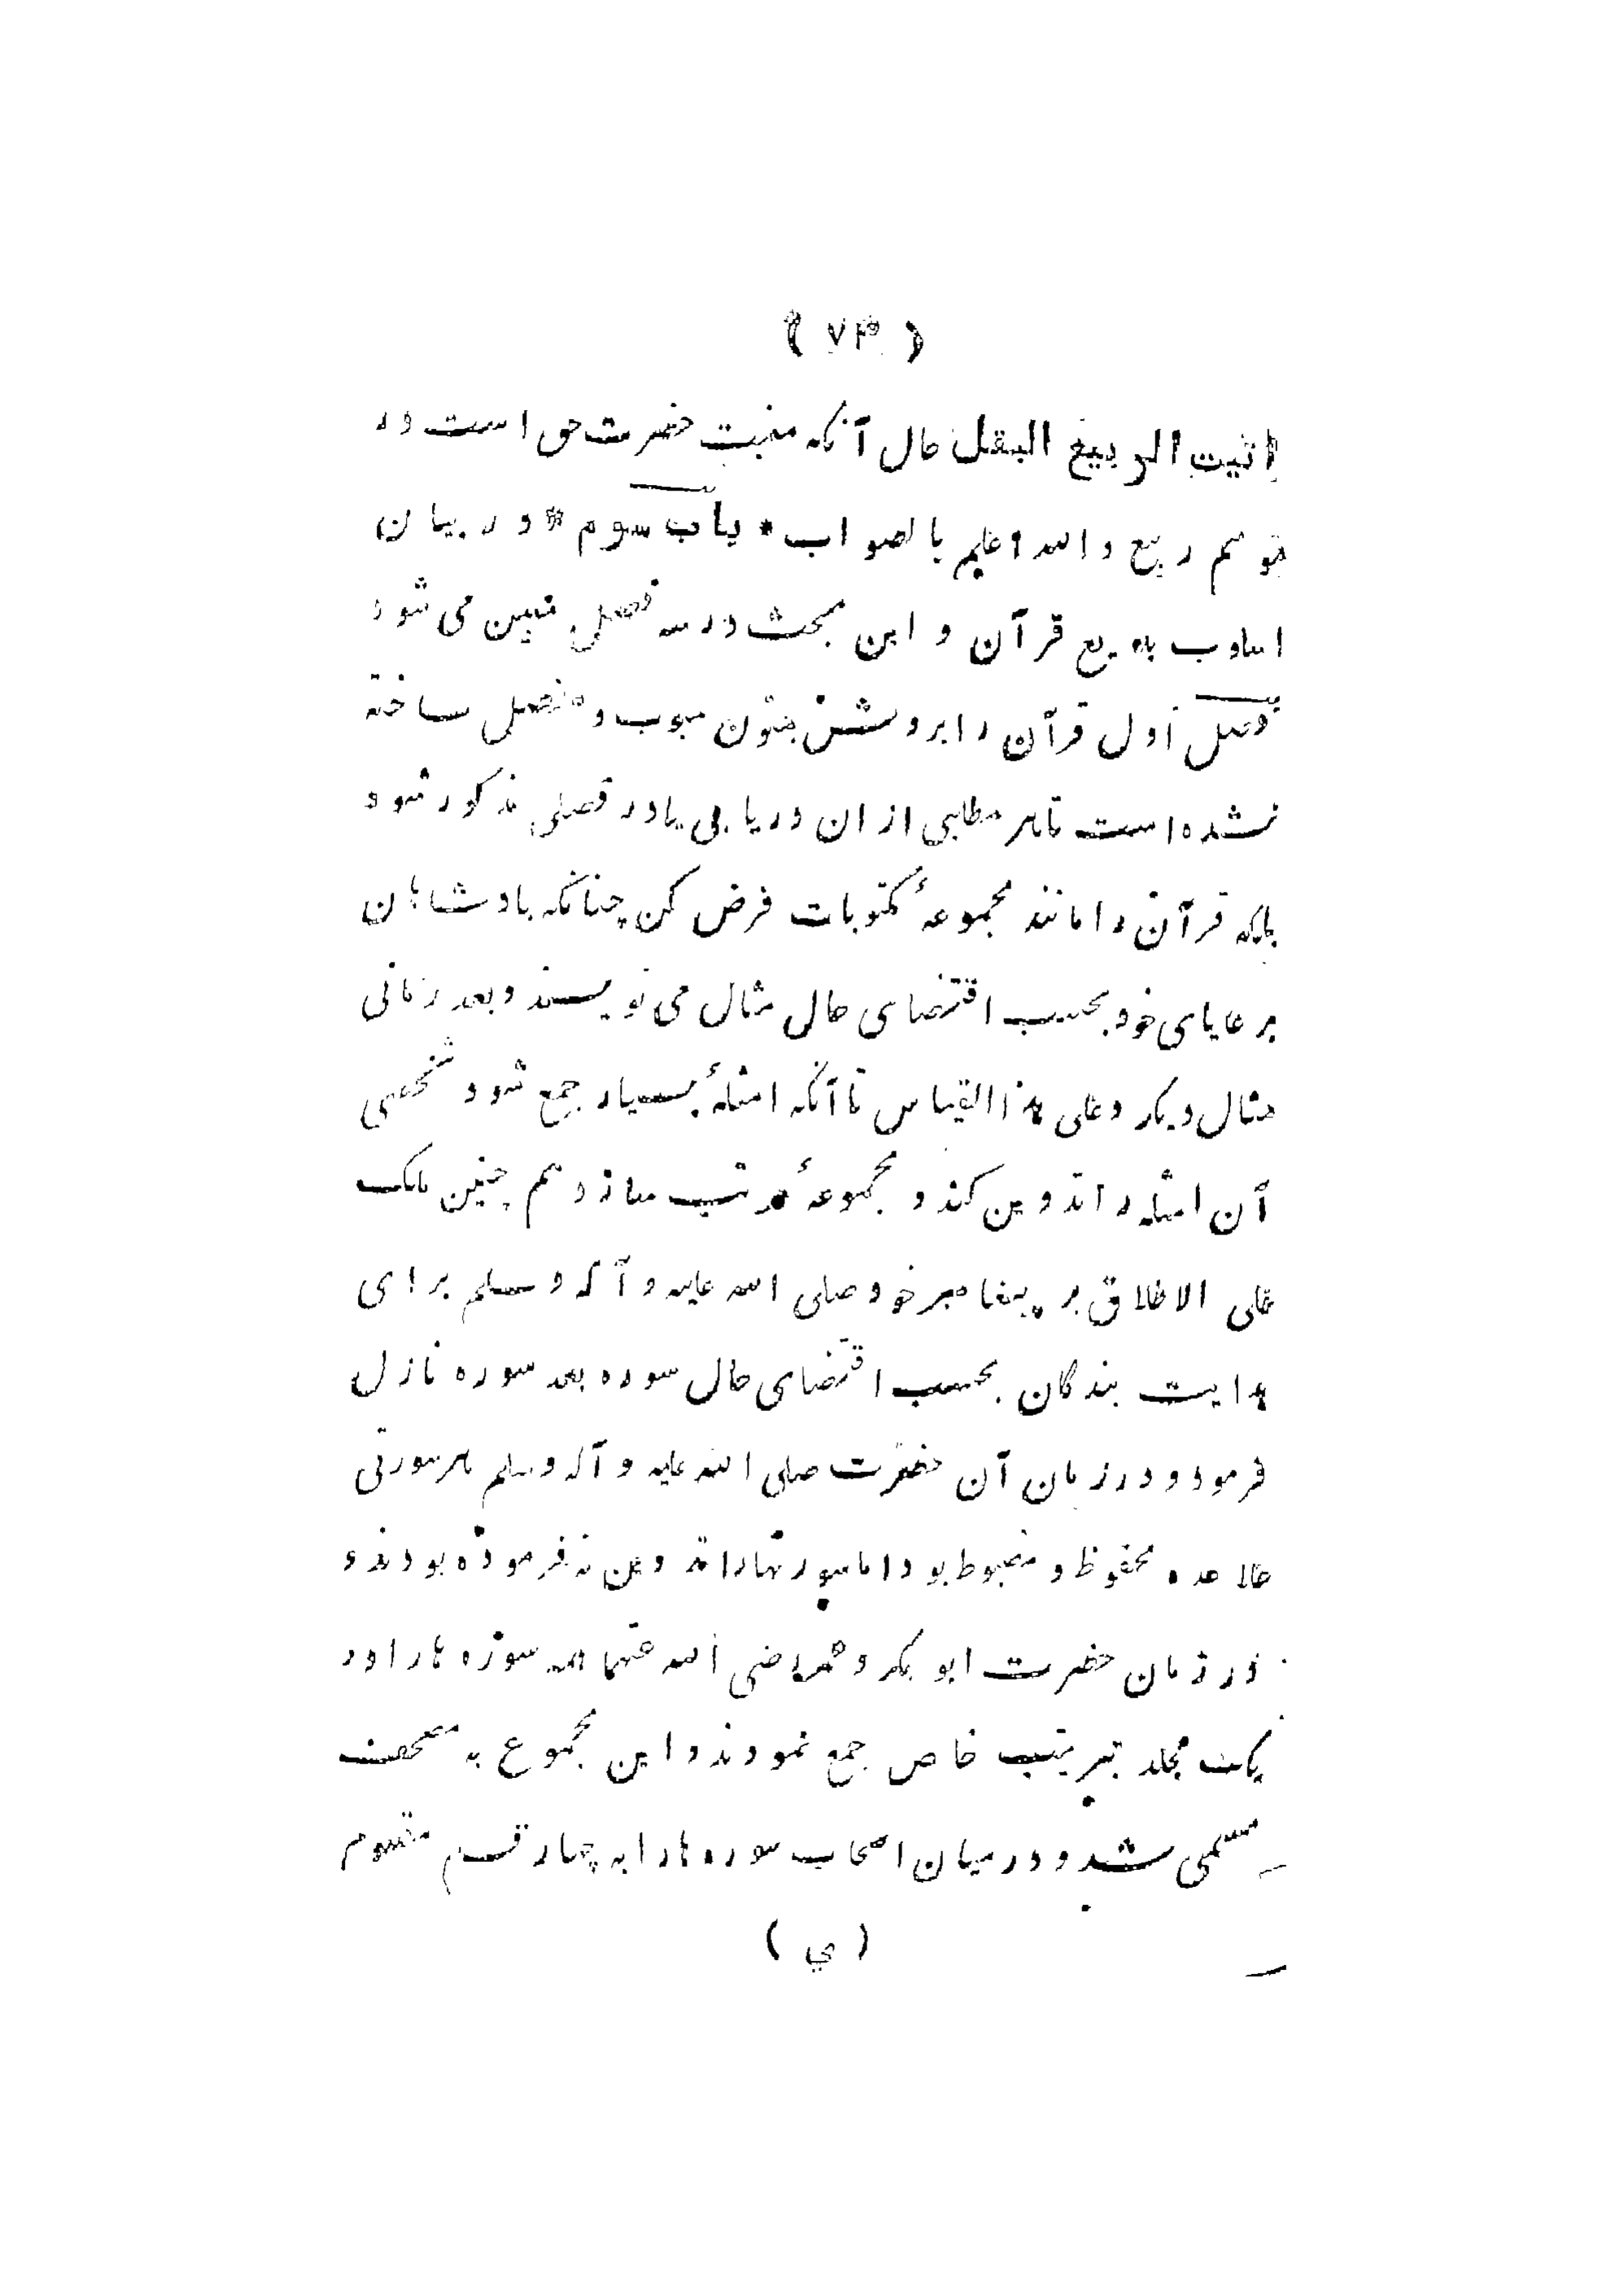 ( ۷۳ )
انبت الربیع البقل حال آنکه منبت حضرت حق است در
موسم ربیع و الله اعلم بالصواب * باب سوم * در بیان
اسلوب بدیع قرآن و این مبحث در سه فصل مبین می شود
فصل اول قرآن را بروش متون مبوب و مفصل ساخته
نشده است تا هر مطلبی از ان در بابی یا در فصلی مذکور شود
بلکه قرآن را مانند مجموعهٔ مکتوبات فرض کن چنانکه بادشاهان
برعایای خود بحسب اقتضای حال مثال می نویسند و بعد زمانی
مثال دیگر و علی هذا القیاس تا آنکه امثلهٔ بسیار جمع شود شخصی
آن امثله را تدوین کند و مجموعهٔ مرتب سازد هم چنین ملک
علی الاطلاق بر پیغامبر خود صلی الله علیه و آله و سلم برای
هدایت بندگان بحسب اقتضای حال سوره بعد سوره نازل
فرمود و در زمان آن حضرت صلی الله علیه و آله و سلم هر سورتی
علاحده محفوظ و مضبوط بود اما سورتها را تدوین نه فرموده بودند و
در زمان حضرت ابو بکر و عمر رضی الله عنهما همه سوره ها را در
یک مجلد بترتیب خاص جمع نمودند و این مجموع به مصحف
مسمی شد و در میان اصحاب سوره ها را به چهار قسم مقسوم
( ي )